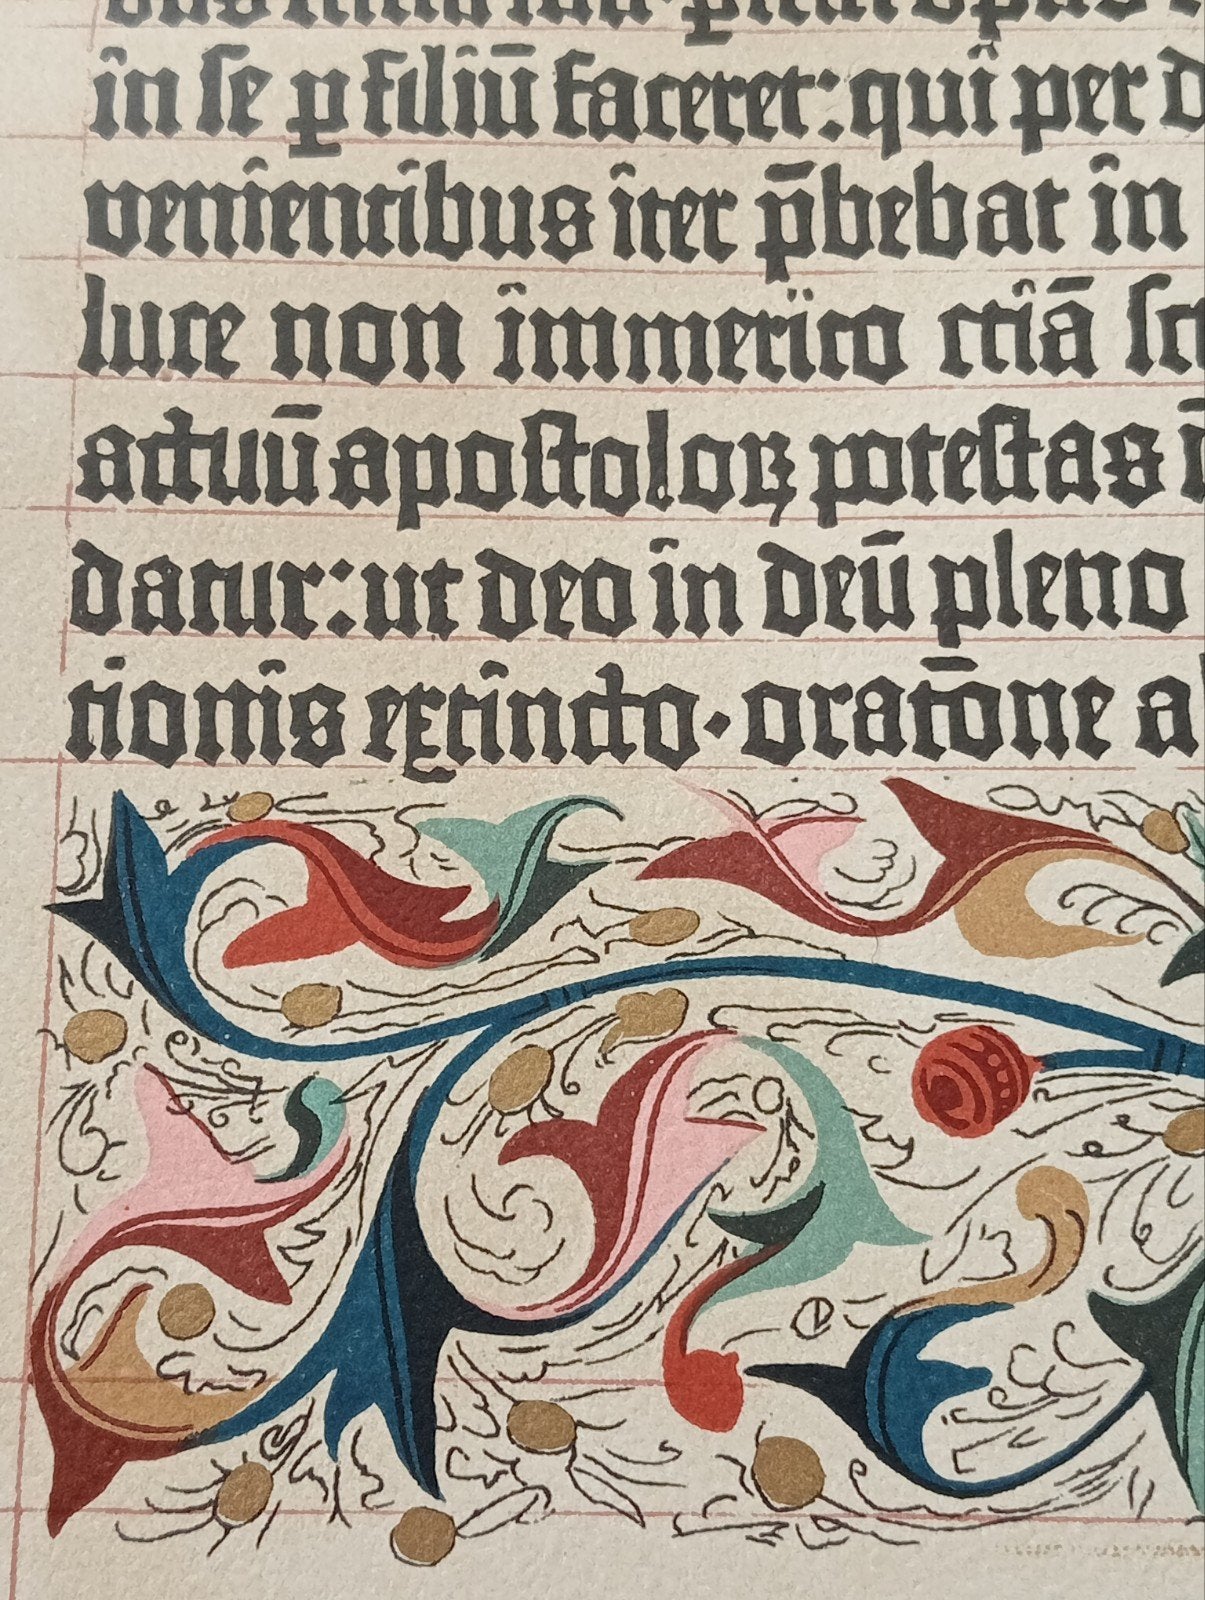 in se ꝑ filiū faceret: qui per d
venientibus iter p̄bebat in
luce non immerito etiā sc
actuū apostoloꝝ potestas
datur: ut deo in deū pleno
tionis extincto· orat̄one a